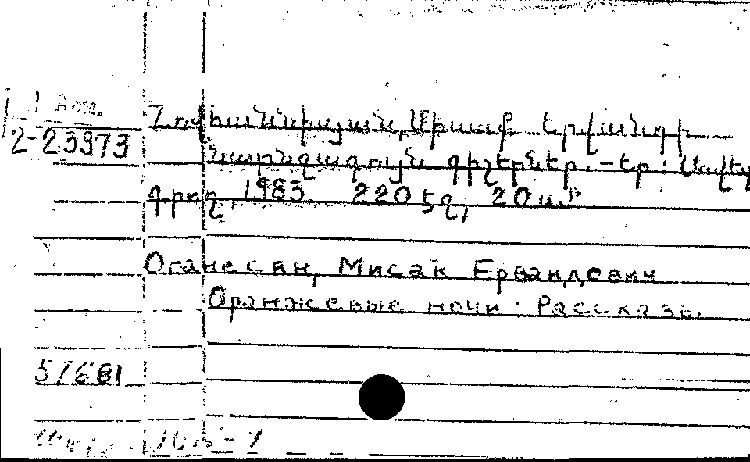 2-23973
Հովհաննիսյան, Միսաք Երվանդի
Նարնջագույն գիշերներ. -Եր.: Սովետ.
գրող, 1983. 220 էջ, 20 սմ
Оганесян, Мисак Ервандович
Оранжевые ночи: Рассказы.
51681